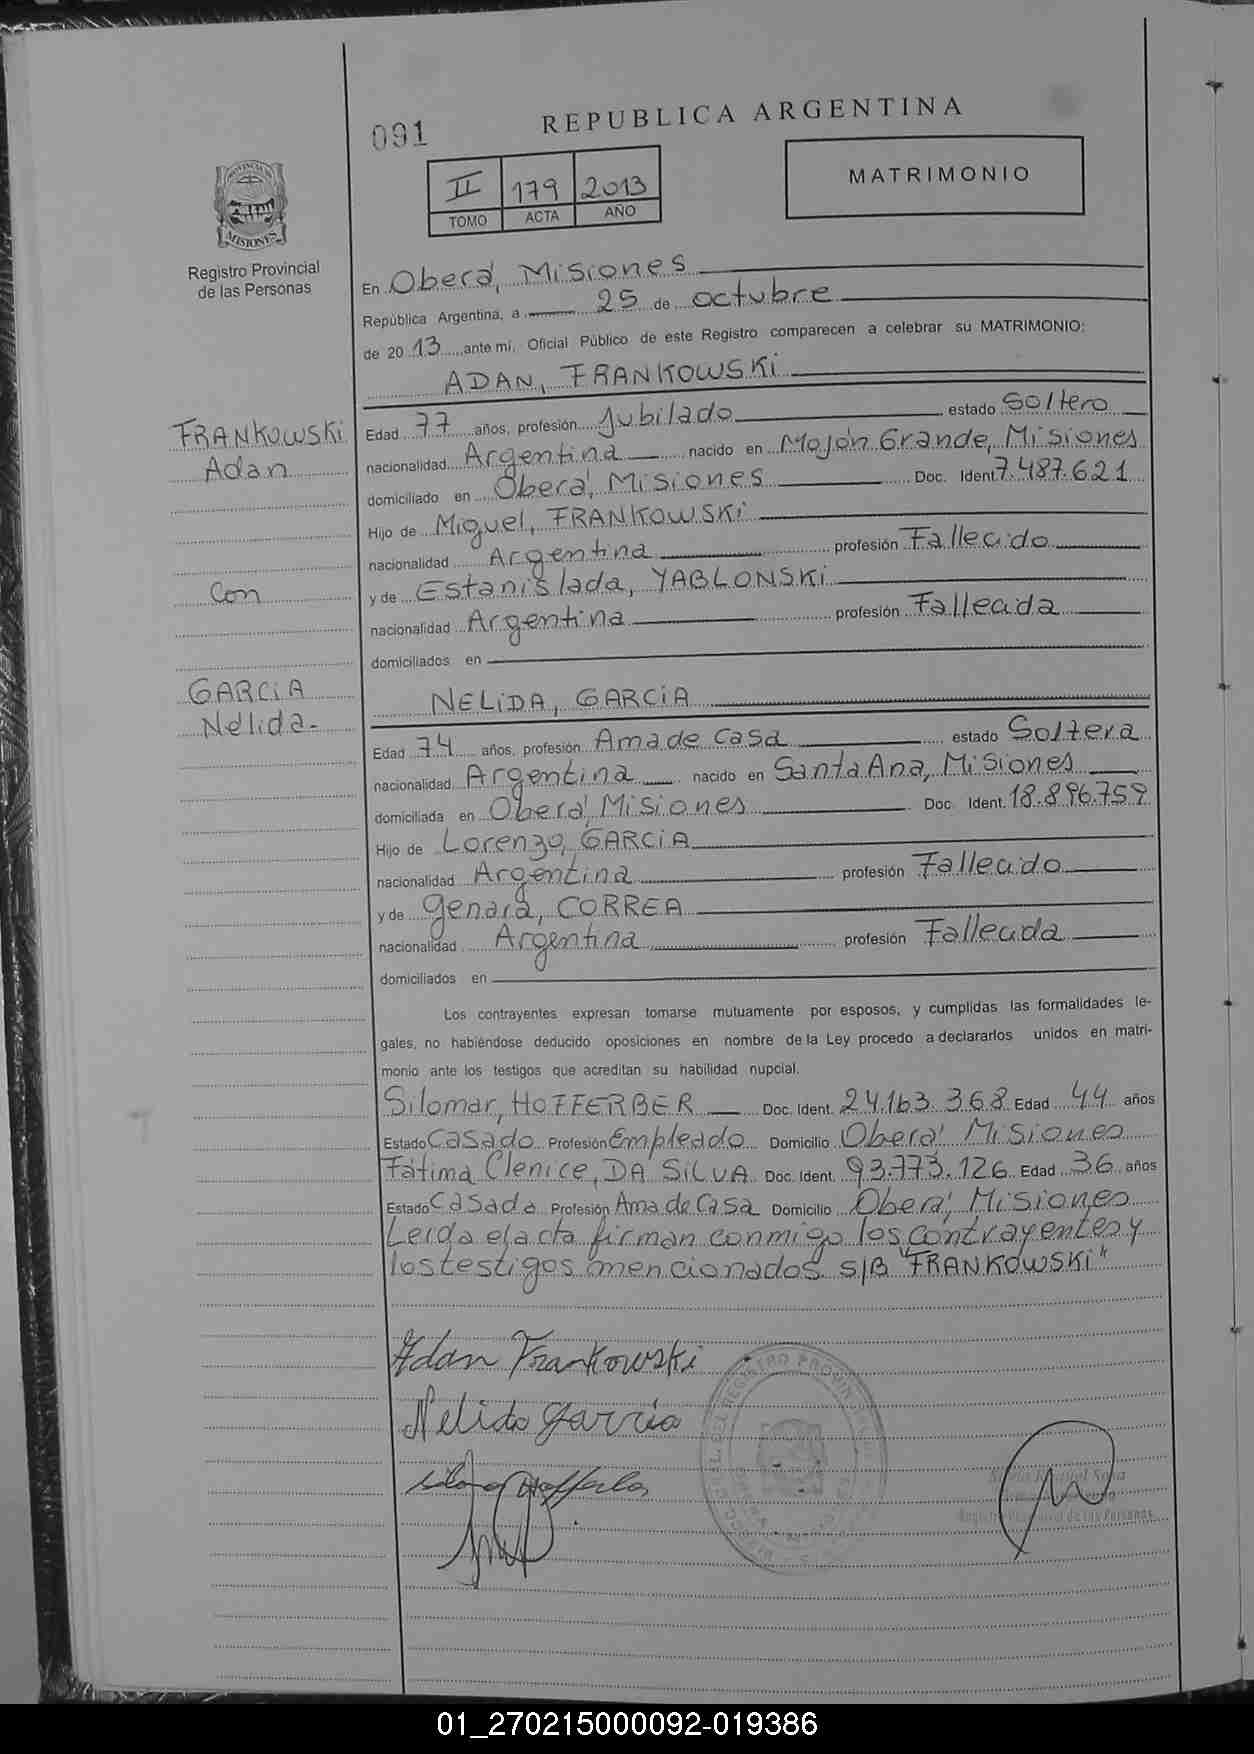 091
REPUBLICA ARGENTINA
II 179 2013
TOMO ACTA AÑO
MATRIMONIO
PROVINCIA DE
MISIONES
Registro Provincial
de las Personas
En Oberá, Misiones
República Argentina, a 25 de octubre
de 2013 ante mi, Oficial Público de este Registro comparecen a celebrar su MATRIMONIO:
ADAN, FRANKOWSKi
FRANKOWSKi
Adan
Edad 77 años, profesión Jubilado estado Soltero
nacionalidad Argentina nacido en Mojón Grande, Misiones
domiciliado en Oberá, Misiones Doc. Ident 7.487.621
Hijo de Miguel, FRANKOWSKi
nacionalidad Argentina profesión Fallecido
Con
y de Estanislada, YABLONSKi
nacionalidad Argentina profesión Fallecida
domiciliados en
GARCiA
Nelida-
NELiDA, GARCiA
Edad 74 años, profesión Ama de Casa estado Soltera
nacionalidad Argentina nacido en Santa Ana, Misiones
domiciliada en Oberá, Misiones Doc. Ident. 18.896.759
Hijo de Lorenzo, GARCiA
nacionalidad Argentina profesión Fallecido
y de Genara, CORREA
nacionalidad Argentina profesión Fallecida
domiciliados en
Los contrayentes expresan tomarse mutuamente por esposos, y cumplidas las formalidades le-
gales, no habiéndose deducido oposiciones en nombre de la Ley procedo a declararlos unidos en matri-
monio ante los testigos que acreditan su habilidad nupcial.
Silomar, HOFFERBER Doc. Ident. 24.163.368 Edad 44 años
Estado Casado Profesión Empleado Domicilio Oberá, Misiones
Fátima Clenice, DA SiLVA Doc. Ident. 93.773.126 Edad 36 años
Estado Casada Profesión Ama de Casa Domicilio Oberá, Misiones
Leida el acta firman conmigo los contrayentes y
los testigos mencionados. S/B "FRANKOWSKi"
Adan Frankowski
Nelida Garcia
01_270215000092-019386